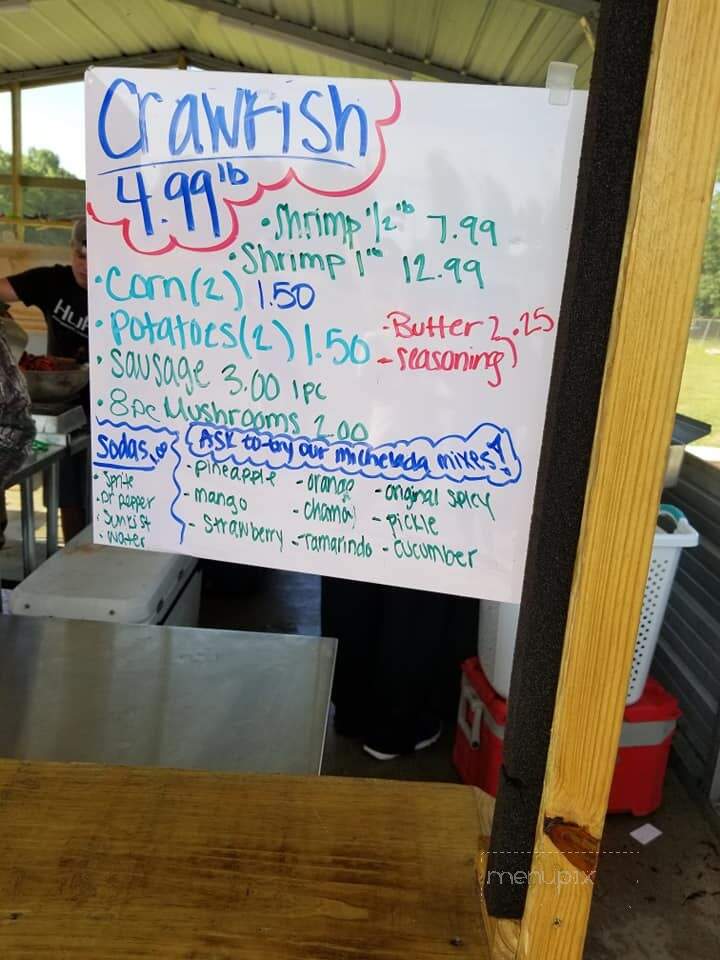 Crawfish
4.99 lb
• Shrimp 1/2 lb 7.99
• Shrimp 1 lb 12.99
• Corn (2) 1.50
• Potatoes (2) 1.50
- Butter
- seasoning } .25
• Sausage 3.00 1pc
• 8pc Mushrooms 2.00
Sodas
• Sprite
• Dr pepper
• Sunkist
• water
Ask to try our michelada mixes!
- pineapple
- mango
- Strawberry
- orange
- chamoy
- Tamarindo
- original spicy
- pickle
- cucumber
menupix